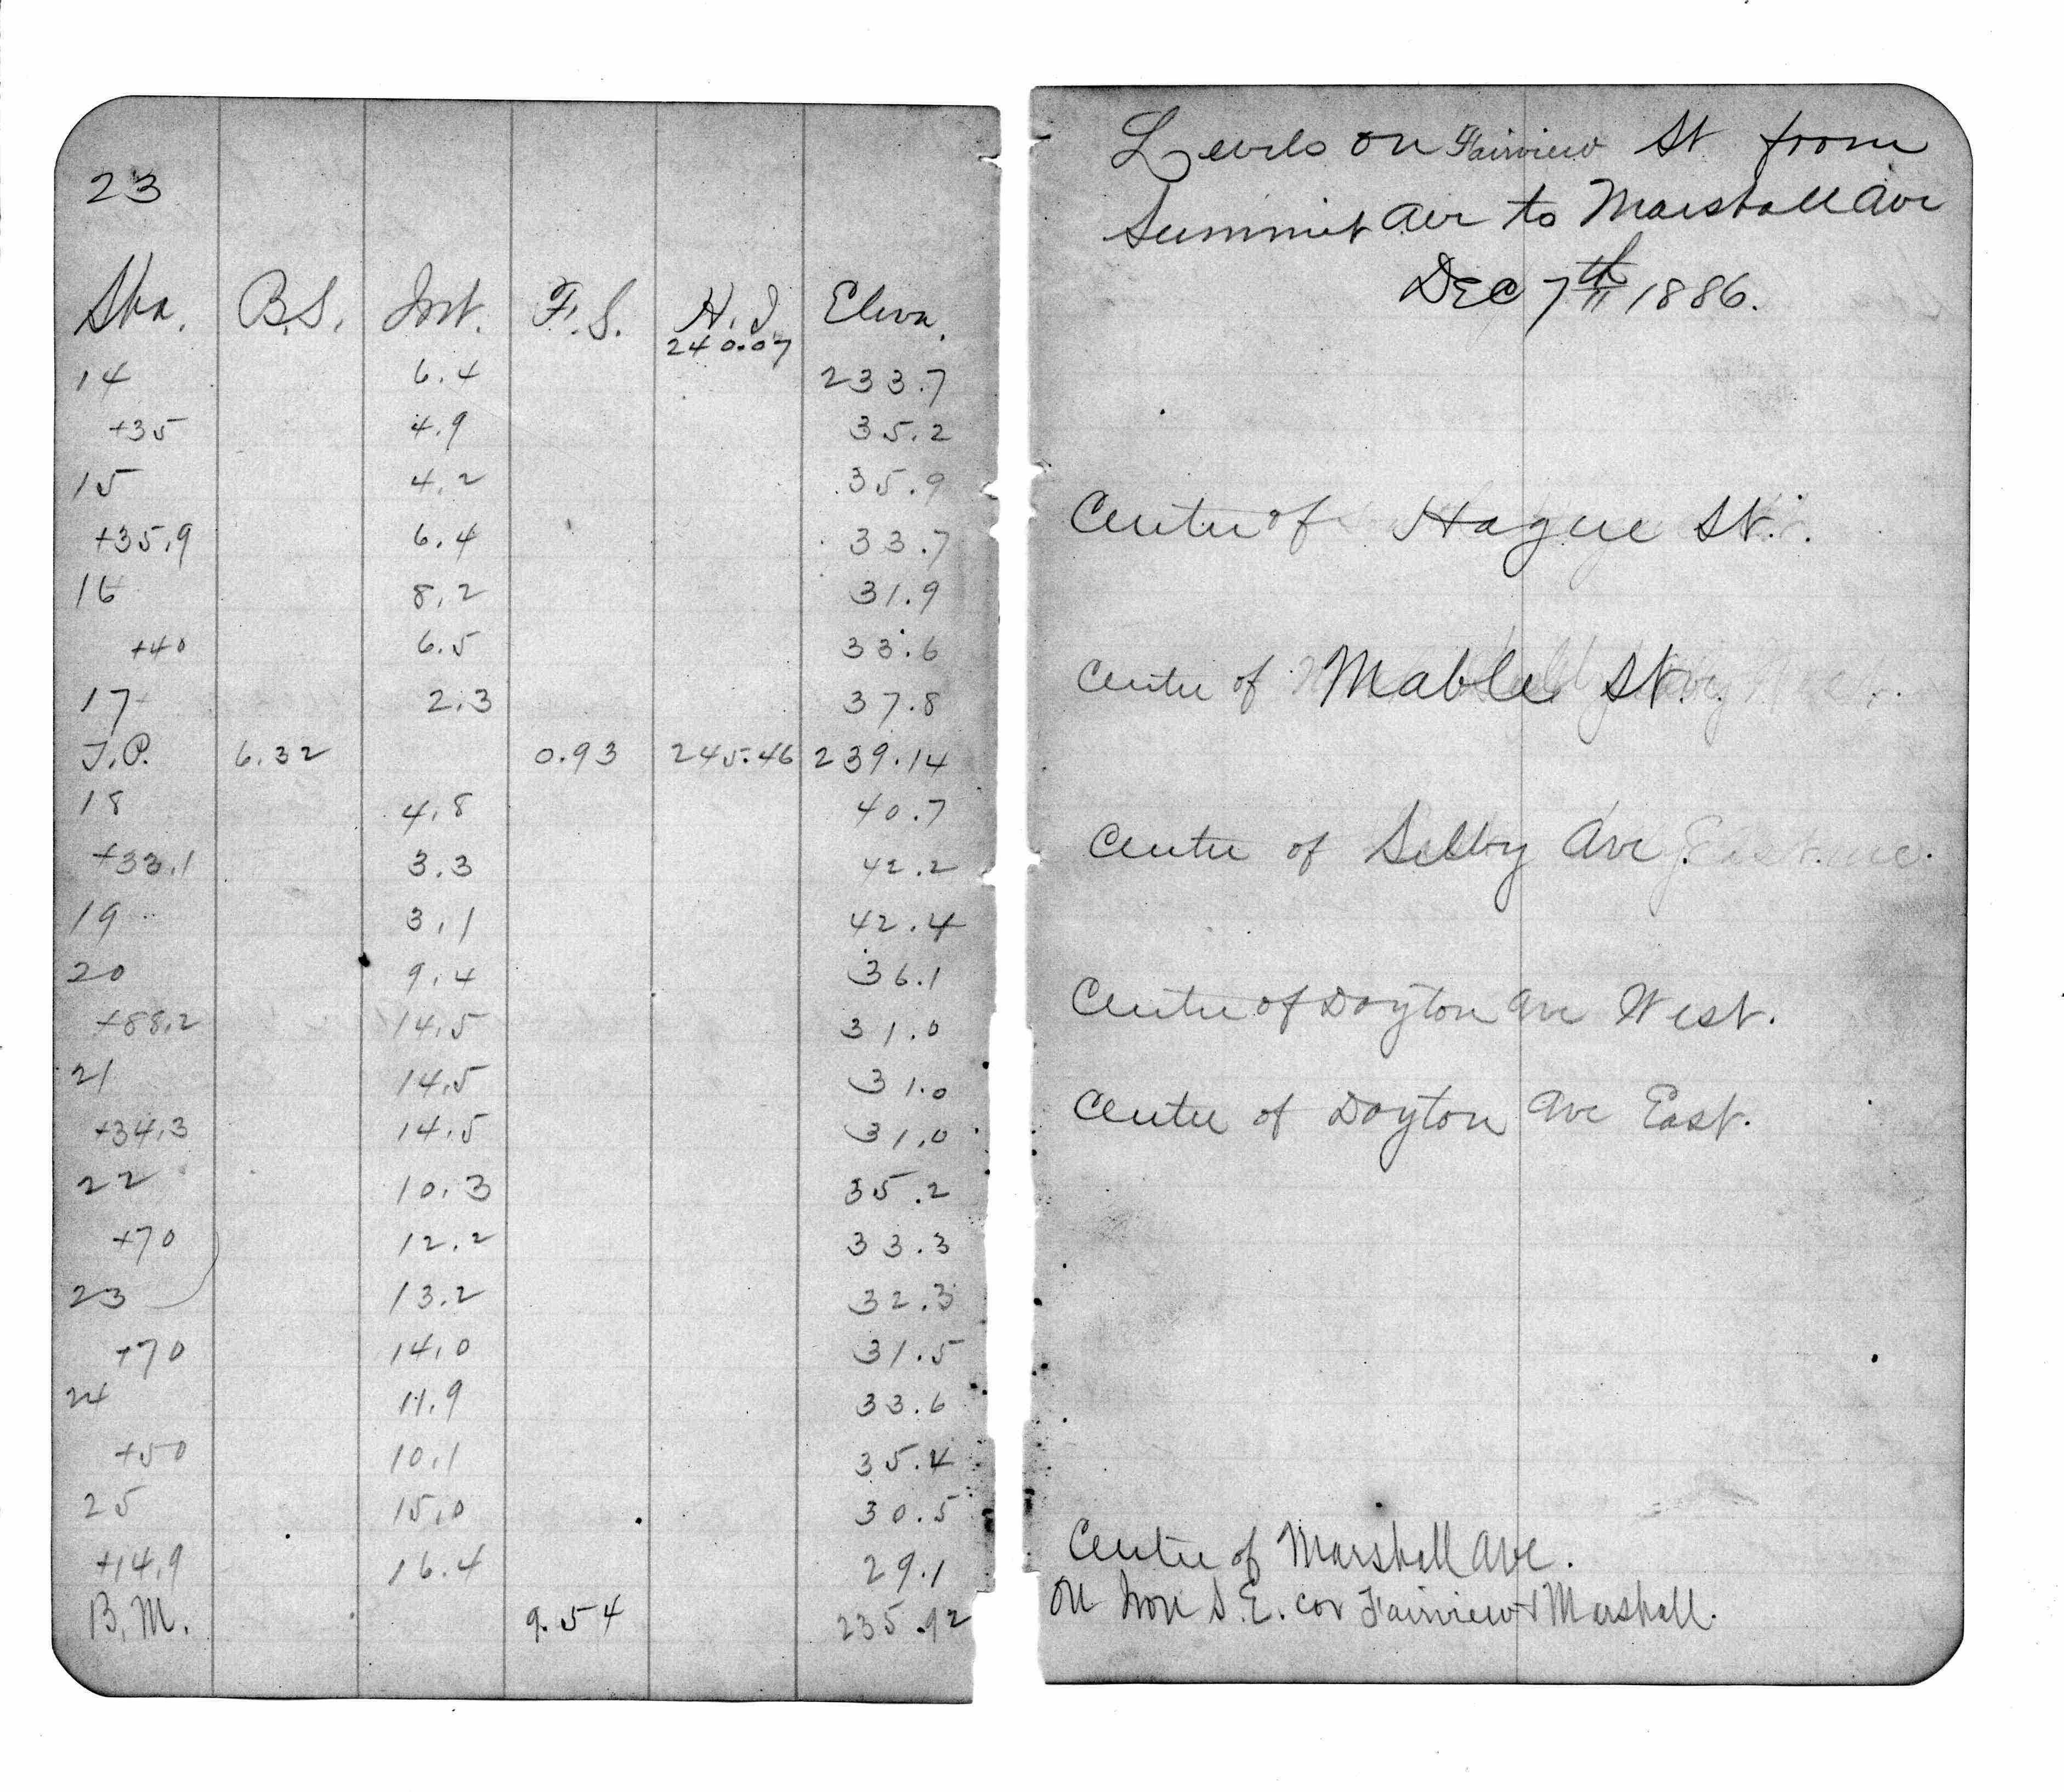 23
Sta. B.S. Int. F.S. H.I. Eleva.
240.07
14 6.4 233.7
+35 4.9 35.2
15 4.2 35.9
+35.9 6.4 33.7
16 8.2 31.9
+40 6.5 33.6
17 2.3 37.8
T.P. 6.32 0.93 245.46 239.14
18 4.8 40.7
+33.1 3.3 42.2
19 3.1 42.4
20 9.4 36.1
+88.2 14.5 31.0
21 14.5 31.0
+34.3 14.5 31.0
22 10.3 35.2
+70 12.2 33.3
23 13.2 32.3
+70 14.0 31.5
24 11.9 33.6
+50 10.1 35.4
25 15.0 30.5
+14.9 16.4 29.1
B.M. 9.54 235.92
Levels on Fairview St from
Summit Ave to Marshall Ave
Dec 7th 1886.
Centre of Hague St.
Centre of Mable St.
Centre of Selby Ave
Centre of Dayton Ave West.
Centre of Dayton Ave East.
Centre of Marshall Ave.
On Iron S.E. cor Fairview & Marshall.